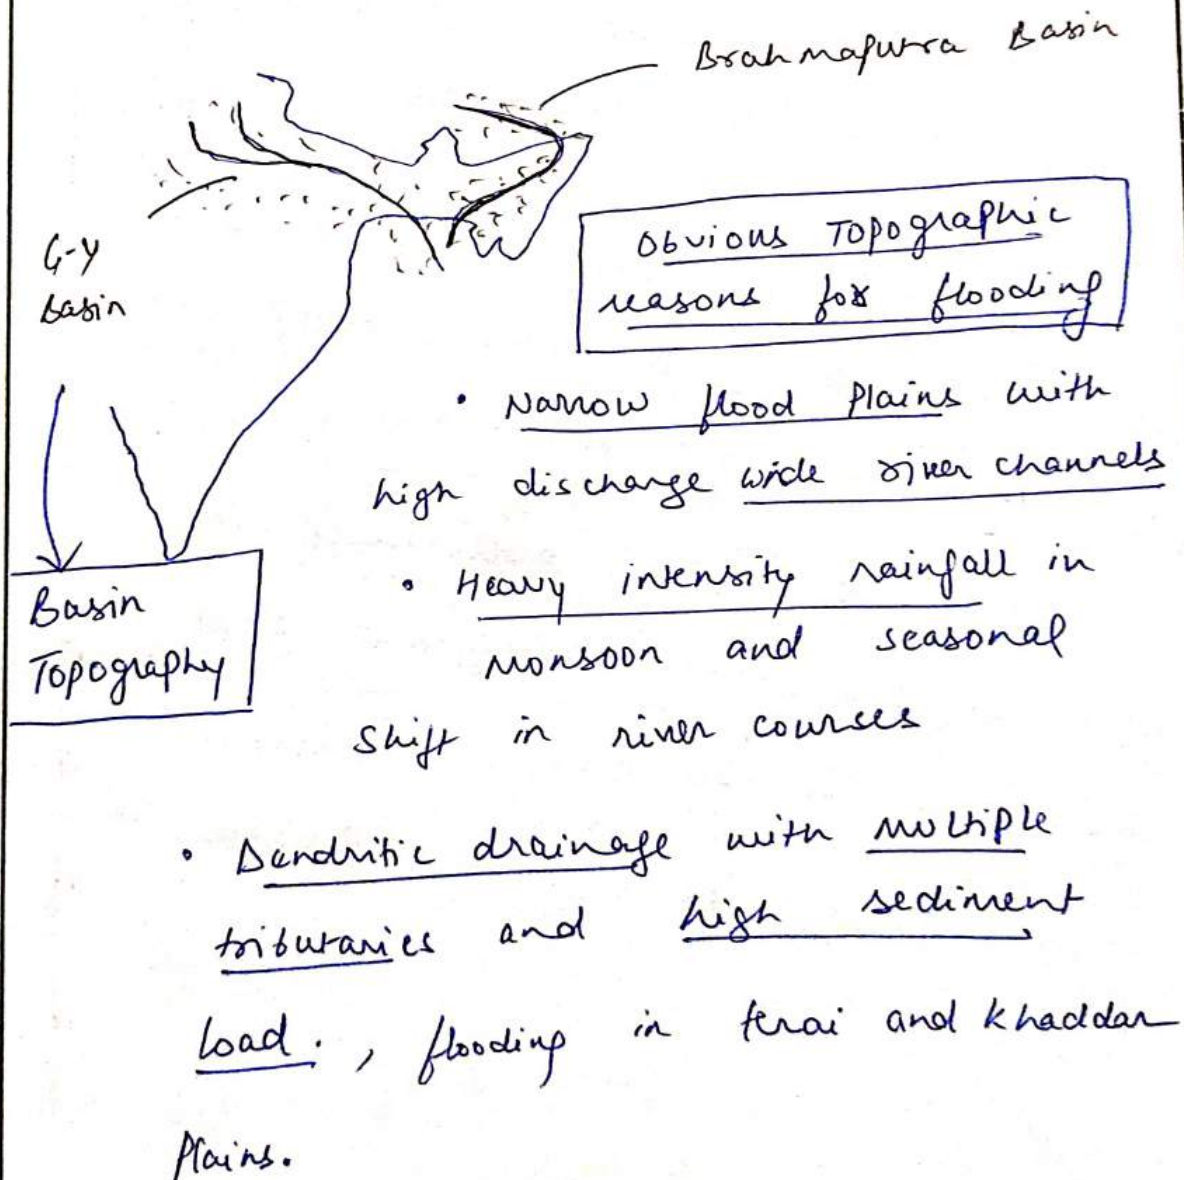 Brahmaputra Basin
G-Y
Basin
Obvious Topographic
reasons for flooding
• Narrow flood Plains with
high discharge wide river channels
• Heavy intensity rainfall in
monsoon and seasonal
shift in river courses
Basin
Topography
• Dendritic drainage with multiple
tributaries and high sediment
load. , flooding in terai and khaddar
Plains.